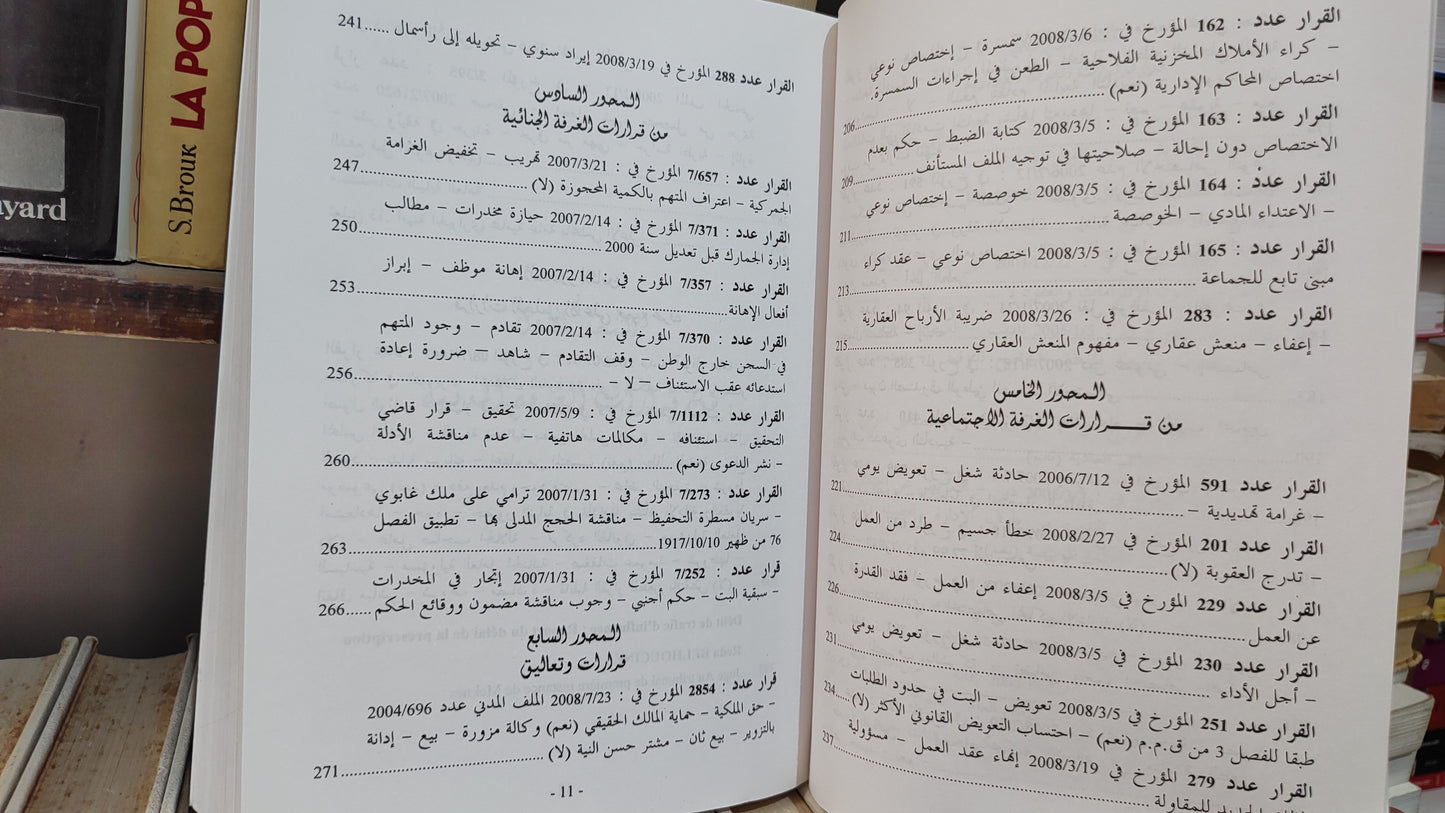 القرار عدد : 162 المؤرخ في : 2008/3/6 سمسرة – إختصاص نوعي
– كراء الأملاك المخزنية الفلاحية – الطعن في إجراءات السمسرة.
اختصاص المحاكم الإدارية (نعم) ....................206
القرار عدد : 163 المؤرخ في : 2008/3/5 كتابة الضبط – حكم بعدم
الاختصاص دون إحالة – صلاحيتها في توجيه الملف المستأنف .....209
القرار عدد : 164 المؤرخ في : 2008/3/5 خوصصة – إختصاص نوعي
– الاعتداء المادي – الخوصصة ....................211
القرار عدد : 165 المؤرخ في : 2008/3/5 اختصاص نوعي – عقد كراء
مبنى تابع للجماعة ....................213
القرار عدد : 283 المؤرخ في : 2008/3/26 ضريبة الأرباح العقارية
– إعفاء – منعش عقاري – مفهوم المنعش العقاري ...............215
المحور الخامس
من قرارات الغرفة الاجتماعية
القرار عدد 591 المؤرخ في 2006/7/12 حادثة شغل – تعويض يومي
– غرامة تهديدية – ....................221
القرار عدد 201 المؤرخ في 2008/2/27 خطأ جسيم – طرد من العمل
– تدرج العقوبة (لا) ....................224
القرار عدد 229 المؤرخ في 2008/3/5 إعفاء من العمل – فقد القدرة
عن العمل ....................226
القرار عدد 230 المؤرخ في 2008/3/5 حادثة شغل – تعويض يومي
– أجل الأداء ....................231
القرار عدد 251 المؤرخ في 2008/3/5 تعويض – البت في حدود الطلبات
طبقا للفصل 3 من ق.م.م (نعم) – احتساب التعويض القانوني الأكثر (لا) ....234
القرار عدد 279 المؤرخ في 2008/3/19 إنهاء عقد العمل – مسؤولية
الجديد للمقاولة ....................237
القرار عدد 288 المؤرخ في 2008/3/19 إيراد سنوي – تحويله إلى رأسمال ......241
المحور السادس
من قرارات الغرفة الجنائية
القرار عدد : 7/657 المؤرخ في : 2007/3/21 تهريب – تخفيض الغرامة
الجمركية – اعتراف المتهم بالكمية المحجوزة (لا) ....................247
القرار عدد : 7/371 المؤرخ في : 2007/2/14 حيازة مخدرات – مطالب
إدارة الجمارك قبل تعديل سنة 2000 ....................250
القرار عدد : 7/357 المؤرخ في : 2007/2/14 إهانة موظف – إبراز
أفعال الإهانة ....................253
القرار عدد : 7/370 المؤرخ في : 2007/2/14 تقادم – وجود المتهم
في السجن خارج الوطن – وقف التقادم – شاهد – ضرورة إعادة
استدعائه عقب الاستئناف – لا – ....................256
القرار عدد : 7/1112 المؤرخ في : 2007/5/9 تحقيق – قرار قاضي
التحقيق – استئنافه – مكالمات هاتفية – عدم مناقشة الأدلة
- نشر الدعوى (نعم) ....................260
القرار عدد : 7/273 المؤرخ في : 2007/1/31 ترامي على ملك غابوي
- سريان مسطرة التحفيظ – مناقشة الحجج المدلى بها – تطبيق الفصل
76 من ظهير 1917/10/10 ....................263
قرار عدد : 7/252 المؤرخ في : 2007/1/31 إتجار في المخدرات
- سبقية البت – حكم أجنبي – وجوب مناقشة مضمون ووقائع الحكم ......266
المحور السابع
قرارات وتعاليق
قرار عدد : 2854 المؤرخ في : 2008/7/23 الملف المدني عدد 2004/696
- حق الملكية – حماية المالك الحقيقي (نعم) وكالة مزورة – بيع – إدانة
بالتزوير – بيع ثان – مشتر حسن النية (لا) ....................271
- 11 -
S. BROUK LA POP
ayard